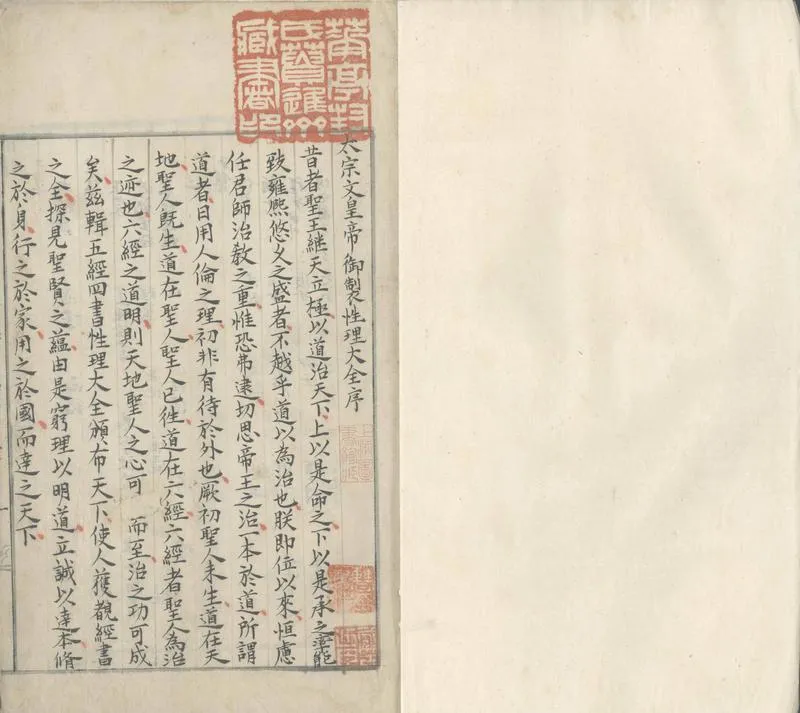 華亭封
氏簣進齋
藏書印
太宗文皇帝御製性理大全序
昔者聖王継天立極以道治天下上以是命之下以是承之能
致雍熈悠久之盛者不越乎道以為治也朕即位以來恒慮
任君師治教之重惟恐弗逮切思帝王之治一本於道所謂
道者日用人倫之理初非有待於外也厥初聖人未生道在天
地聖人既生道在聖人聖人已徃道在六經六經者聖人為治
之迹也六經之道明則天地聖人之心可 而至治之功可成
矣兹輯五經四書性理大全頒布天下使人獲覩經書
之全探見聖賢之蘊由是窮理以明道立誠以達本脩
之於身行之於家用之於國而達之天下